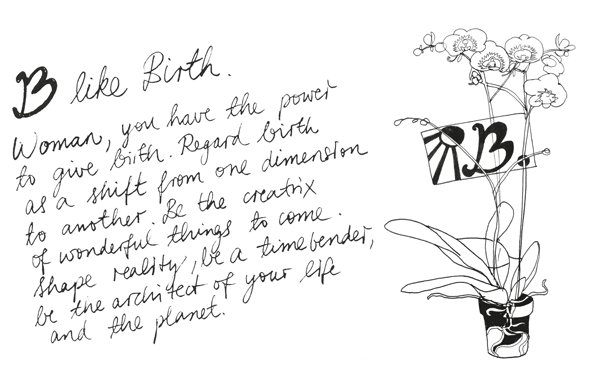 B like Birth.
Woman, you have the power
to give birth. Regard birth
as a shift from one dimension
to another. Be the creatrix
of wonderful things to come.
Shape reality, be a timebender,
be the architect of your life
and the planet.
B.